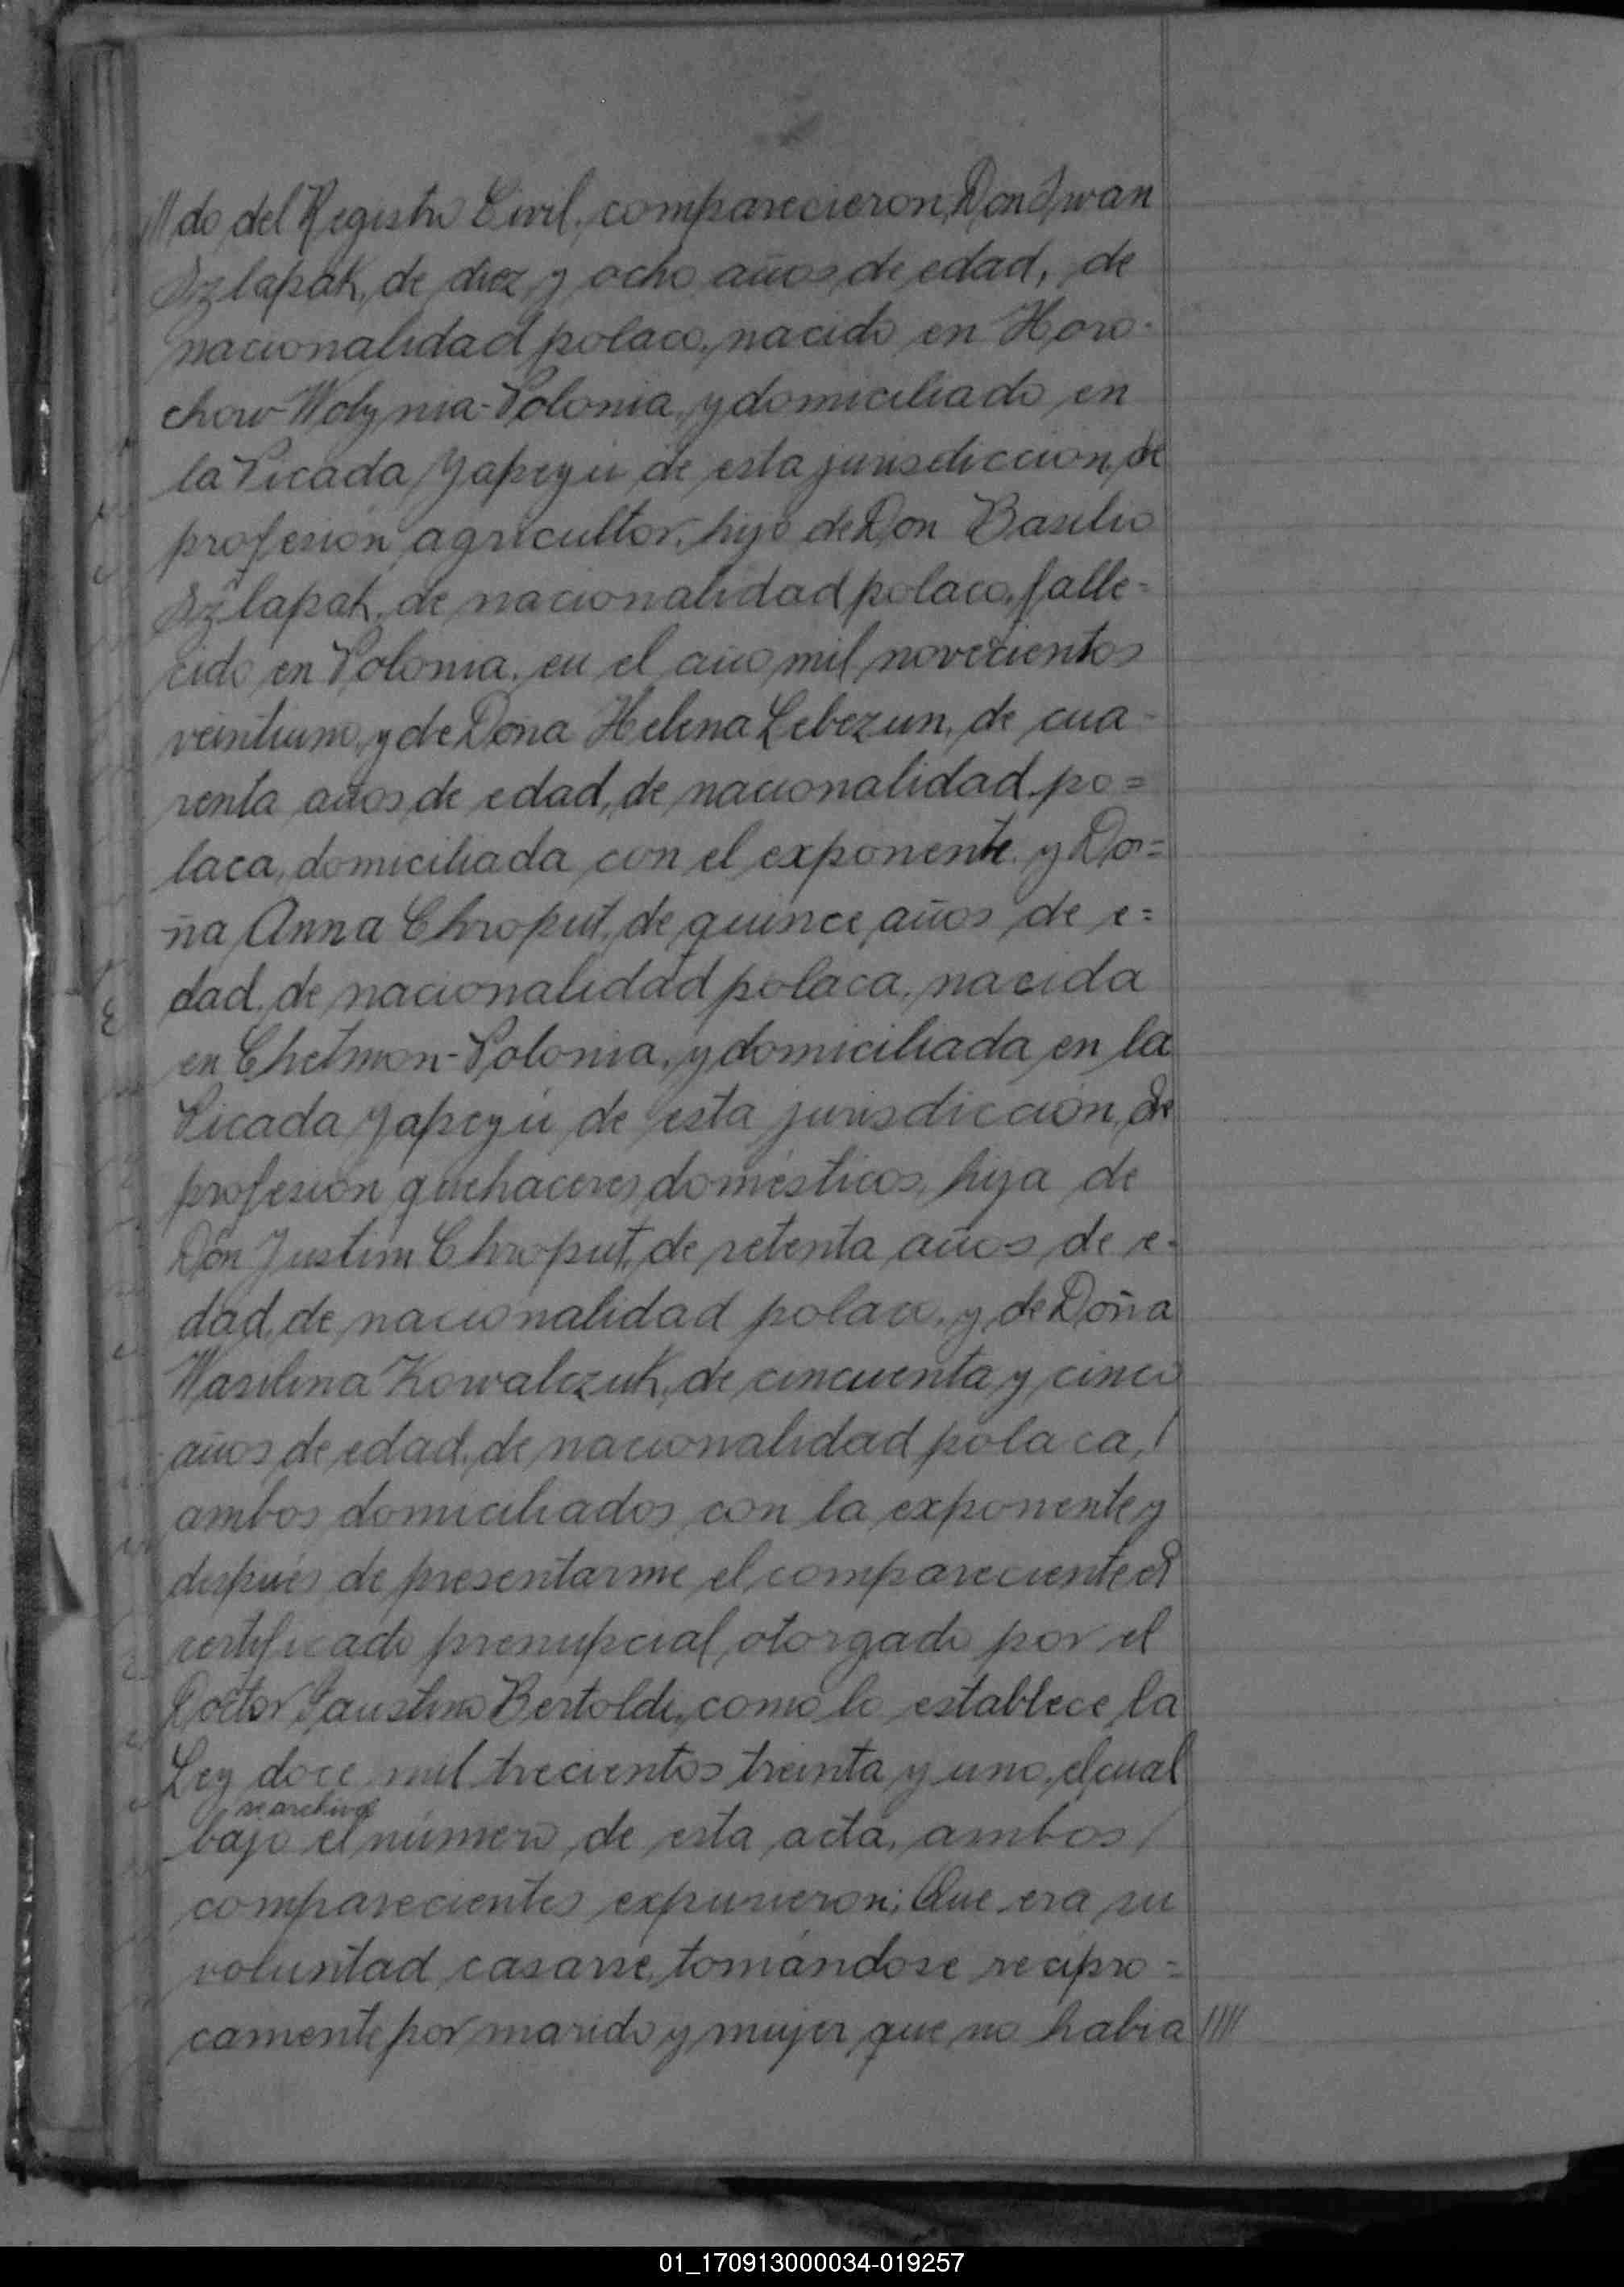 ///do del Registro Civil, comparecieron, Don Iwan
Szlapak, de diez y ocho años de edad, de
nacionalidad polaco, nacido en Horo-
chow-Wolynia-Polonia, y domiciliado en
la Picada Yapeyú de esta jurisdicción, de
profesión agricultor, hijo de Don Basilio
Szlapak, de nacionalidad polaco, falle-
cido en Polonia, en el año mil novecientos
veintiuno, y de Doña Helena Lebezun, de cua-
renta años de edad, de nacionalidad po=
laca, domiciliada con el exponente y Do=
ña Anna Chroput, de quince años de e=
dad, de nacionalidad polaca, nacida
en Chetmon-Polonia, y domiciliada en la
Picada Yapeyú de esta jurisdicción, de
profesión quehaceres domésticos, hija de
Don Justim Chroput, de setenta años de e-
dad, de nacionalidad polaco, y de Doña
Wasilina Kowalczuk, de cincuenta y cinco
años de edad, de nacionalidad polaca, /
ambos domiciliados con la exponente y
después de presentarme el compareciente el
certificado prenupcial, otorgado por el
Doctor Faustino Bertoldi, como lo establece la
Ley doce mil trecientos treinta y uno, el cual
se archiva
bajo el número de esta acta, ambos /
comparecientes expusieron; Que era su
voluntad casarse, tomándose recipro=
camente por marido y mujer, que no habia ////
01_170913000034-019257